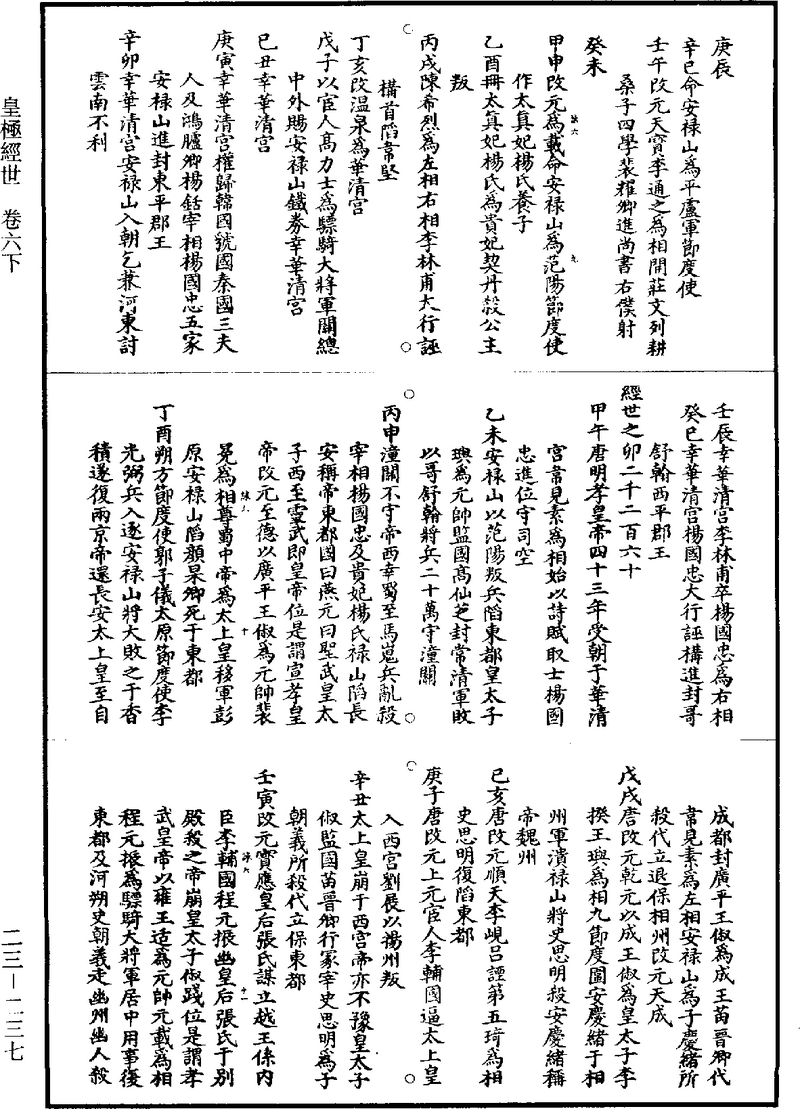 皇極經世　卷六下
二三—二三七
庚辰
辛巳命安禄山爲平盧軍節度使
壬午改元天寶李適之爲相開莊文列耕
桑子四學裴耀卿進尚書右僕射
癸未
甲申改元爲載命安禄山爲范陽節度使
作太真妃楊氏養子
乙酉冊太真妃楊氏爲貴妃契丹殺公主
叛
丙戌陳希烈爲左相右相李林甫大行誣
構首陷韋堅
丁亥改温泉爲華清宫
戊子以宦人高力士爲驃騎大將軍關總
中外賜安禄山鐵券幸華清宫
己丑幸華清宫
庚寅幸華清宫權歸韓國虢國秦國三夫
人及鴻臚卿楊銛宰相楊國忠五家
安禄山進封東平郡王
辛卯幸華清宫安禄山入朝乞兼河東討
雲南不利
壬辰幸華清宫李林甫卒楊國忠爲右相
癸巳幸華清宫楊國忠大行誣構進封哥
舒翰西平郡王
經世之卯二千二百六十
甲午唐明孝皇帝四十三年受朝于華清
宫韋見素爲相始以詩賦取士楊國
忠進位守司空
乙未安禄山以范陽叛兵陷東都皇太子
璵爲元帥監國高仙芝封常清軍敗
以哥舒翰將兵二十萬守潼關
丙申潼關不守帝西幸蜀至馬嵬兵亂殺
宰相楊國忠及貴妃楊氏禄山陷長
安稱帝東都國曰燕元曰聖武皇太
子西至靈武即皇帝位是謂宣孝皇
帝改元至德以廣平王俶爲元帥裴
冕爲相尊蜀中帝爲太上皇移軍彭
原安禄山陷顔杲卿死于東都
丁酉朔方節度使郭子儀太原節度使李
光弼兵入逐安禄山將大敗之于香
積遂復兩京帝還長安太上皇至自
成都封廣平王俶爲成王苗晉卿代
韋見素爲左相安禄山爲子慶緒所
殺代立退保相州改元天成
戊戌唐改元乾元以成王俶爲皇太子李
揆王璵爲相九節度圍安慶緒于相
州軍潰禄山將史思明殺安慶緒稱
帝魏州
己亥唐改元順天李峴吕諲第五琦爲相
史思明復陷東都
庚子唐改元上元宦人李輔國逼太上皇
入西宫劉展以揚州叛
辛丑太上皇崩于西宫帝亦不豫皇太子
俶監國苗晉卿行冢宰史思明爲子
朝義所殺代立保東都
壬寅改元寳應皇后張氏謀立越王係内
臣李輔國程元振幽皇后張氏于别
殿殺之帝崩皇太子俶踐位是謂孝
武皇帝以雍王适爲元帥元載爲相
程元振爲驃騎大將軍居中用事復
東都及河朔史朝義走幽州幽人殺